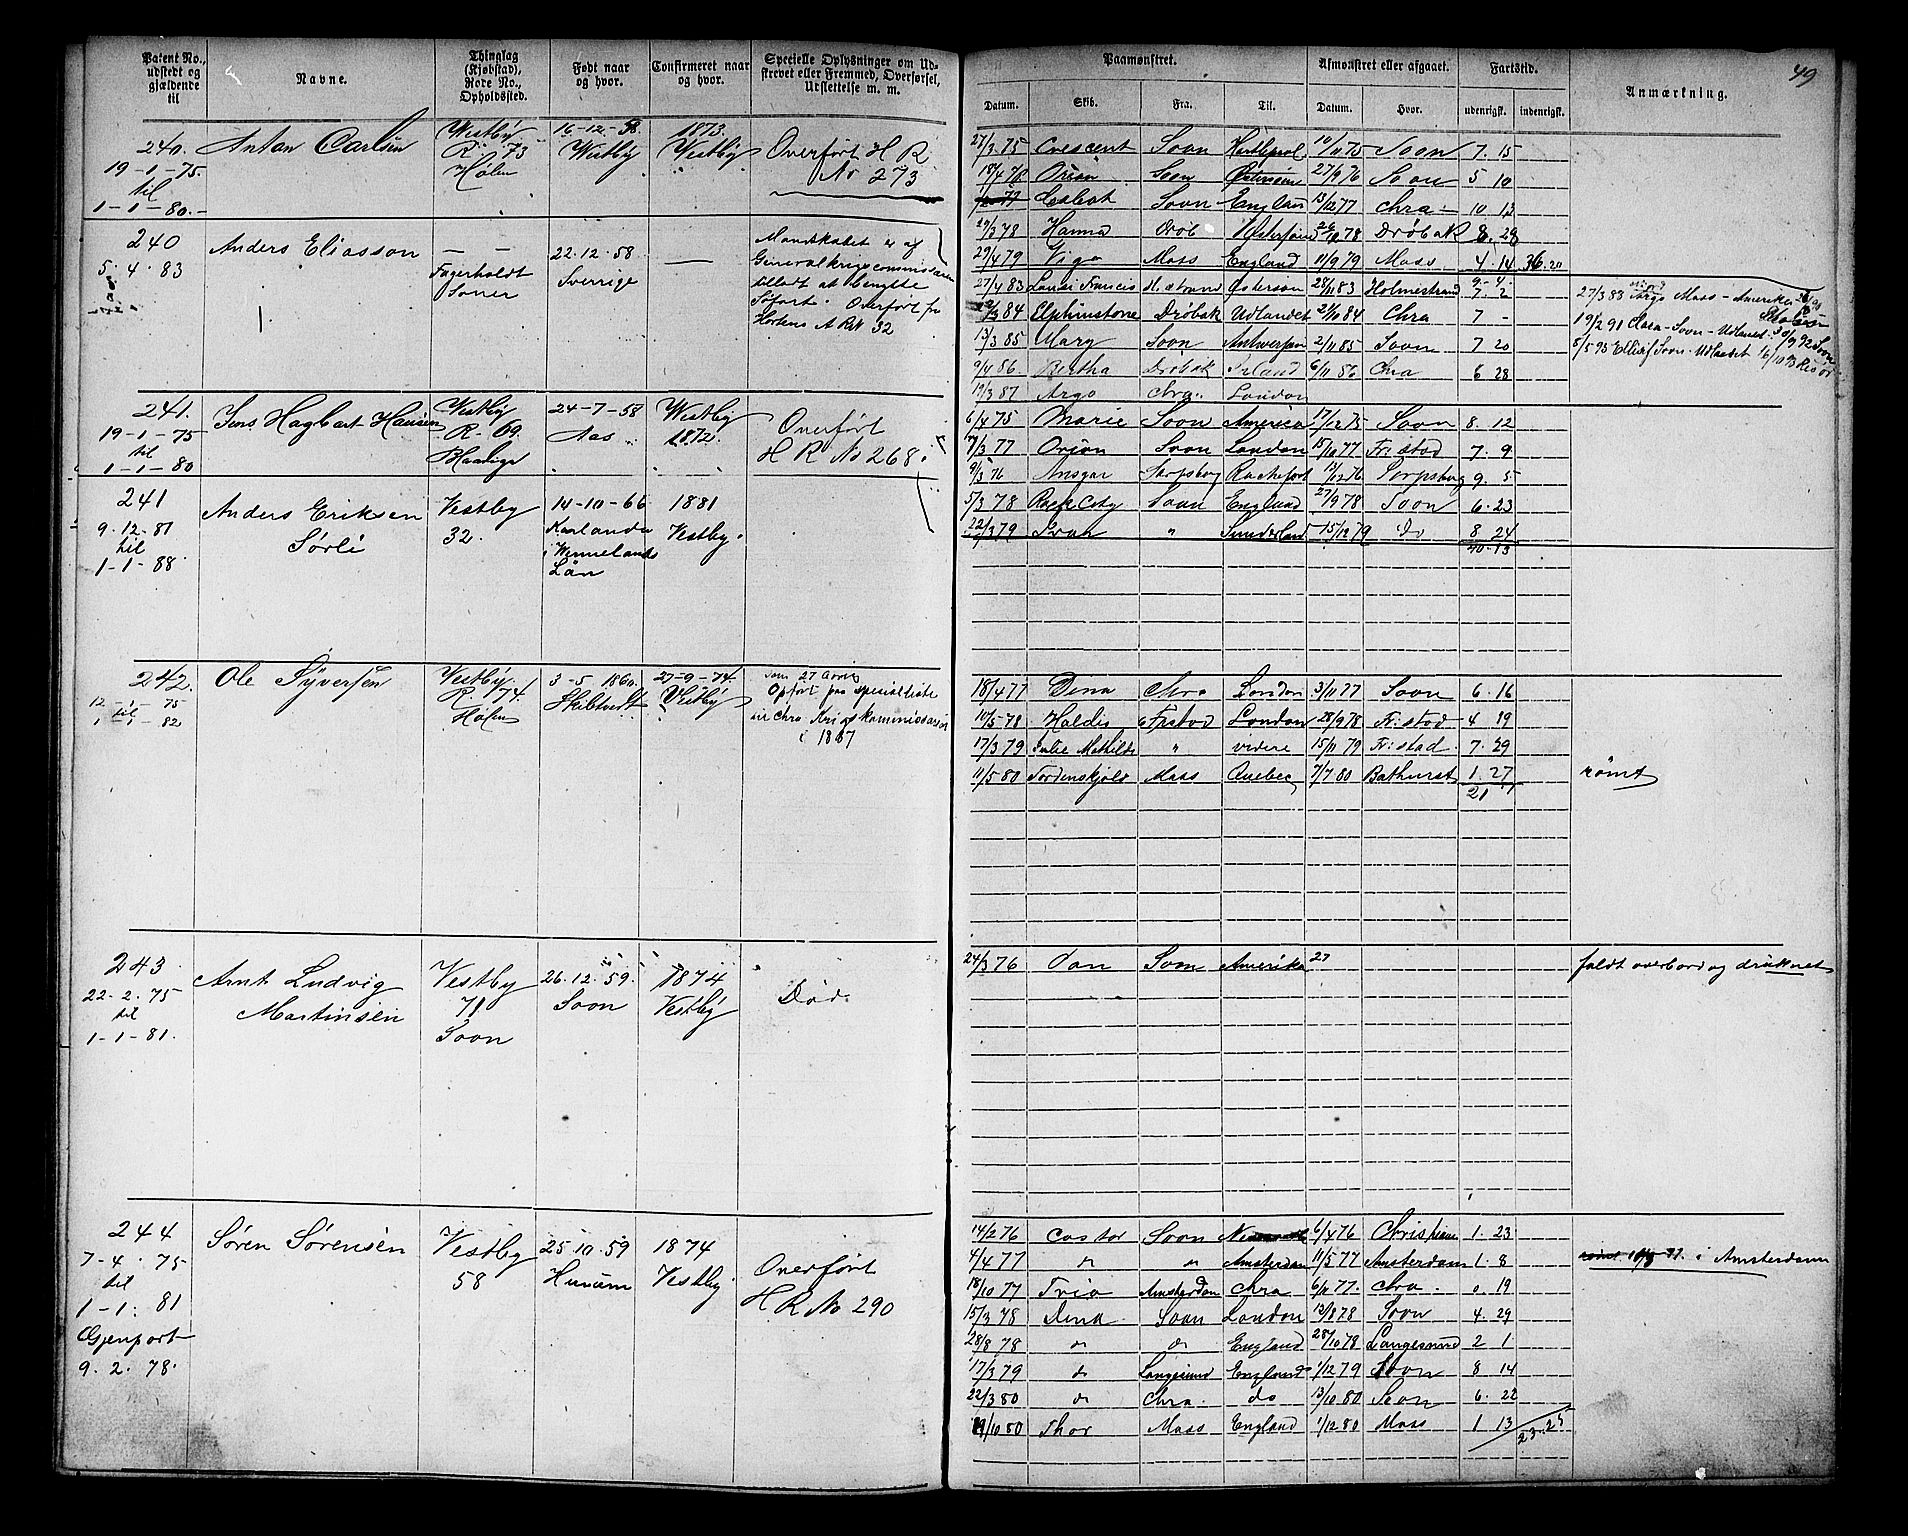 Patent No., udstedt og gjældende til
Navne.
Thinglag (Kjøbstad), Rode No., Opholdssted.
Født naar og hvor.
Confirmeret naar og hvor.
Specielle Oplysninger om Udstrevet eller Fremmed, Overførsel, Udslettelse m. m.
240.
19-1-75.
til
1-1-80.-
Anton Carlsen
Westby
R. 73
Hølen
16-12-58.
Westby
1873.
Vestby
Overført H R
No 273
240
5 4 83
Anders Eliasson
Fagerholdt
Soner
22.12.58
Sverrige
Mandskabet er af
Generalkrigscommissæren
tilladt at benytte
Søfart. Overført fra
Hortens A R No 32
241.
19-1-75
til
1-1-80
Jens Hagbart Hansen
Vestby
R. 69.
24-7-58
Aas
Westby
1872.
Overført
H R No 268.
241
9.12-81
til
1-1-88.
Anders Eriksen
Sørli
Vestby
32.
14-10-66
i Wermelands
Län
1881
Vestby.
242.
12 - - 75
til
1 - 1 - 82
Ole Syversen
Vestby.
R. 74.
Hølen
3-5 1860.
Skibtvedt
27-9-74.
Vestby
Opført paa specialliste
i 1887
243
22-2.75
til
1-1-81.
Arnt Ludvig
Martinsen
Vestby
71
Soon
26.12.59.
Soon
1874
Vestby
Død.
244
7-4.75
til
1-1.81
Gjenpart
9.2.78.
Søren Sørensen
Vestby
58
25.10.59
Hurum
1874
Vestby.
Overført
H R No 290
49
Paamønstret.
Afmønstret eller afgaaet.
Fartstid.
Anmærkning.
Datum. Skib. Fra. Til. Datum. Hvor. udenrigst. indenrigst.
27/3 75 Crescent Soon Hartlepol 10/11 75 Soon 7. 15
18/4 76 Orion Soon Østersøen 27/9 76 Soon 5 10
Soon England 13/12 77 Chra 10 13
27/3 78 Hanna Drøb Østersøen 78 Drøbak 8. 28
29/4 79 Viga Moss England 11/9 79 Moss 4. 14 36.20
27/4 83 Lousi Francis Østersøen 28/11 83 Holmestrand 7. 2
84 Elphinstone Drøbak Udlandet 24/10 84 Chra 7 -
13/3 85 Mary Soon Antwerpen 2/11 85 Soon 7 20
9/4 86 Bertha Drøbak Irland 6/11 86 Chra 6 28
19/3 87 Argo Chra. London
27/3 88 Argo Moss - Amerika
19/2 91 Clara - Soon - Udlandet
8/5 93 Soon - Udlandet
6/4 75 Marie Soon America 17/12 75 Soon 8. 12
7/3 77 Orion Soon London 15/10 77 Fr:stad 7. 9
9/3 76 Ansgar Sarpsborg Rochefort 76 Sarpsborg 9. 5
5/3 78 Rock City Soon England 27/9 78 Soon 6. 23
22/3 79 Svan " Sunderland 15/12 79 Do 8 24
40.13
18/4 77 Dina Chra London 3/11 77 Soon 6. 16
10/5 78 Haldis Frstad London 28/9 78 Fr:stad 4 19
17/3 79 Julie Mathilde " videre 15/11 79 Fr:stad. 7. 29
11/5 80 Tordenskjold Moss Quebec 7/7 80 Bathurst 1. 27 rømt
21
24/3 76 Dan Soon Amerika 27 faldt overbord og druknet
14/2 76 Castor Soon 6/4 76 Christiania 1. 23
4/4 77 do do Amsterdam 11/5 77 Amsterdam 1. 8 i Amsterdam
18/10 77 Frio Amsterdam Chra 6/11 77. Chra. 0 19
15/3 78 Dina Soon London 13/8 78 Soon 4. 29
28/8 78 do do England 28/10 78 Langesund 2 1
17/3 79 do Langesund England 1/12 79 Soon 8 14
22/3 80 do Chra. do 13/10 80 Soon 6. 22
10 80 Thor Moss England 1/12 80 Moss 1 13
23.25